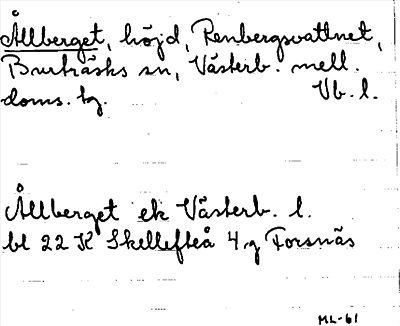 Ållberget, höjd, Renbergsvattnet,
Burträsks sn, Västerb. mell.
doms. tg. Vb. l.
Ållberget ek Västerb. l.
bl 22 K Skellefteå 4 g Forsnäs
ML-61